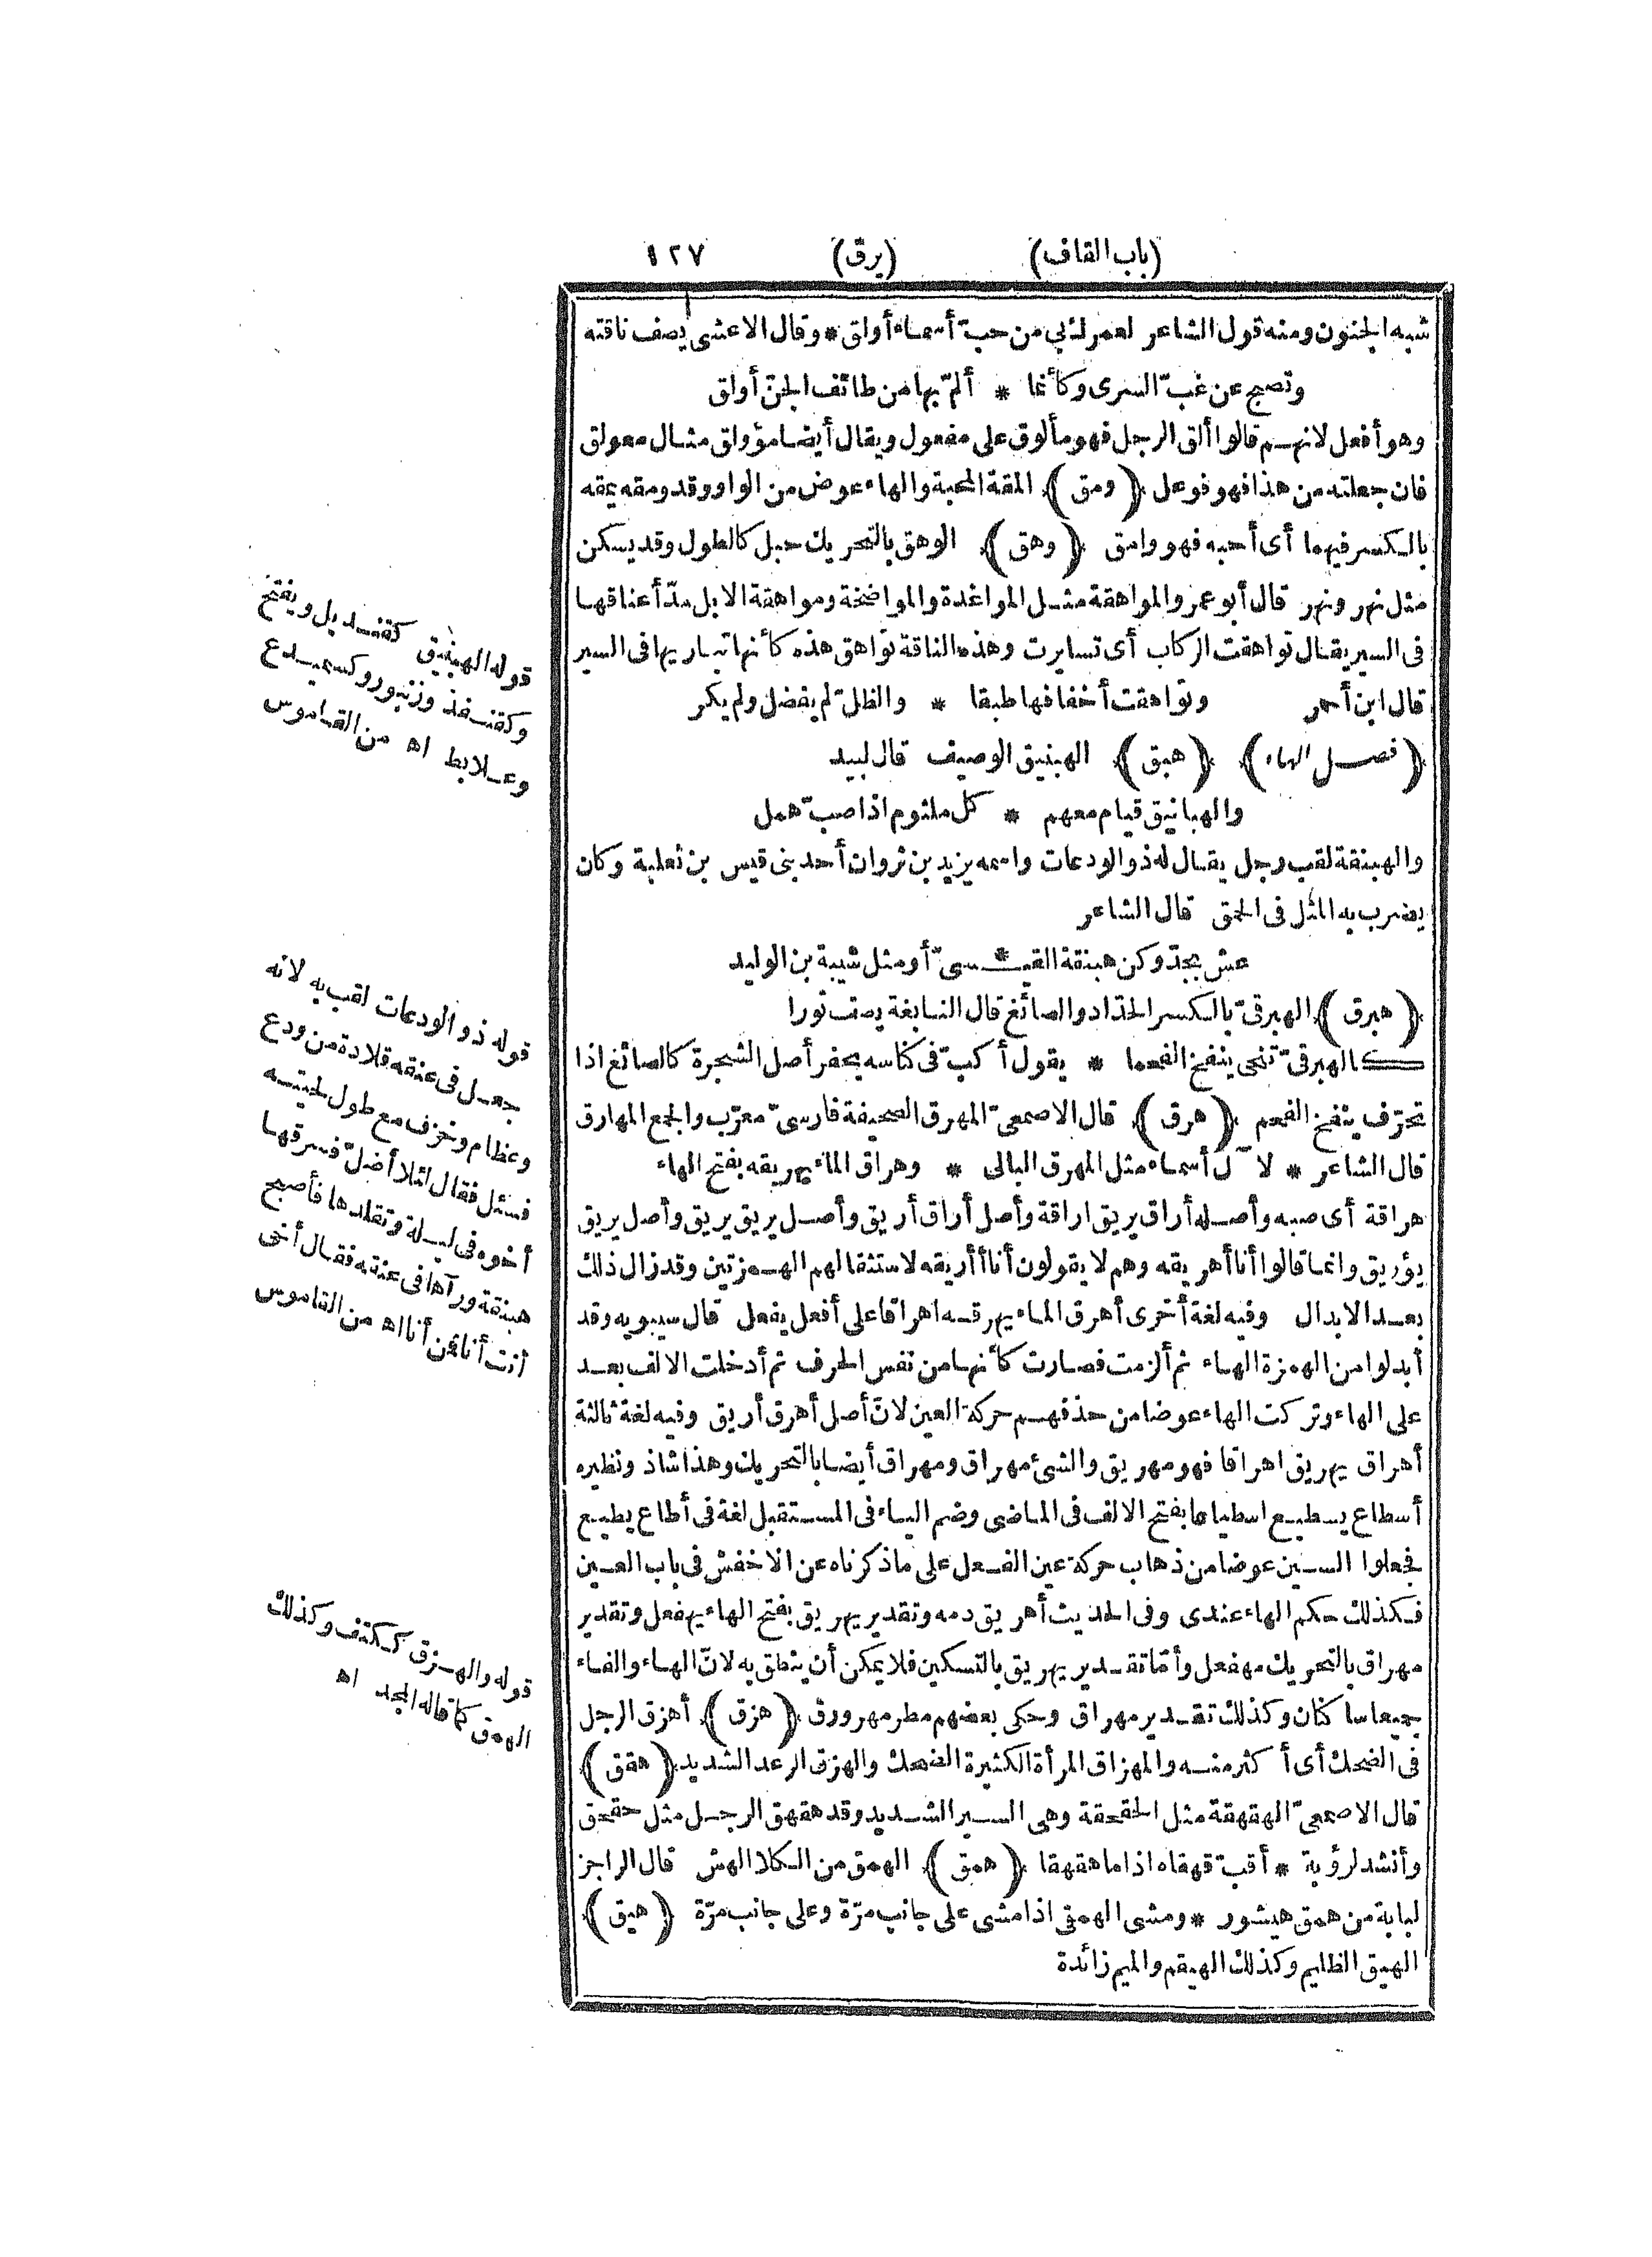 (باب القاف) (يرق) ١٢٧
شبه الجنون ومنه قول الشاعر لعمرك بي من حب أسماء أولق * وقال الاعشى يصف ناقته
وتصبح عن غبّ السرى وكأنما * ألمّ بها من طائف الجنّ أولق
وهو أفعل لانهم قالوا ألق الرجل فهو مألوق على مفعول ويقال أيضا مؤولق مثال معولق
فان جعلته من هذا فهو فوعل ﴿ومق﴾ المقة المحبة والهاء عوض من الواو وقد ومقه يمقه
بالكسر فيهما أى أحبه فهو وامق ﴿وهق﴾ الوهق بالتحريك حبل كالطول وقد يسكن
مثل نهر ونهر قال أبو عمر والمواهقة مثل المواغدة والمواضخة ومواهقة الابل مدّ أعناقها
فى السير يقال تواهقت الركاب أى تسايرت وهذه الناقة تواهق هذه كأنها تباريها فى السير
قال ابن أحمر وتواهقت أخفافها طبقا * والظلّ لم يفضل ولم يكر
﴿فصل الهاء﴾ ﴿هبق﴾ الهبنيق الوصيف قال لبيد
والهبانيق قيام معهم * كل ملثوم اذا صبّ همل
والهبنقة لقب رجل يقال له ذو الودعات واسمه يزيد بن ثروان أحد بنى قيس بن ثعلبة وكان
يضرب به المثل فى الحمق قال الشاعر
عش بجدّ وكن هبنقة القيـ * ـسىّ أو مثل شيبة بن الوليد
﴿هبرق﴾ الهبرقىّ بالكسر الحدّاد والصائغ قال النابغة يصف ثورا
كالهبرقىّ تنحى ينفخ الفحما * يقول أكبّ فى كناسه يحفر أصل الشجرة كالصائغ اذا
تحرّف ينفخ الفحم ﴿هرق﴾ قال الاصمعىّ المهرق الصحيفة فارسىّ معرّب والجمع المهارق
قال الشاعر * لآل أسماء مثل المهرق البالى * وهراق الماء يهريقه بفتح الهاء
هراقة أى صبه وأصله أراق يريق اراقة وأصل أراق أريق وأصل يريق يريق وأصل يريق
يؤريق وانما قالوا أنا أهريقه وهم لا يقولون أنا أأريقه لاستثقالهم الهمزتين وقد زال ذلك
بعد الابدال وفيه لغة أخرى أهرق الماء يهرقه اهراقا على أفعل يفعل قال سيبويه وقد
أبدلوا من الهمزة الهاء ثم ألزمت فصارت كأنها من نفس الحرف ثم أدخلت الالف بعد
على الهاء وتركت الهاء عوضا من حذفهم حركة العين لانّ أصل أهرق أريق وفيه لغة ثالثة
أهراق يهريق اهراقا فهو مهريق والشئ مهراق ومهراق أيضا بالتحريك وهذا شاذ ونظيره
أسطاع يسطيع اسطياعا بفتح الالف فى الماضى وضم الياء فى المستقبل لغة فى أطاع يطيع
فجعلوا السين عوضا من ذهاب حركة عين الفعل على ماذكرناه عن الاخفش فى باب العين
فكذلك حكم الهاء عندى وفى الحديث أهريق دمه وتقدير يهريق بفتح الهاء يهفعل وتقدير
مهراق بالتحريك مهفعل وأمّا تقدير يهريق بالتسكين فلا يمكن أن ينطق به لانّ الهاء والفاء
جميعا ساكنان وكذلك تقدير مهراق وحكى بعضهم مطر مهرورق ﴿هزق﴾ أهزق الرجل
فى الضحك أى أكثر منه والمهزاق المرأة الكثيرة الضحك والهزق الرعد الشديد ﴿هقق﴾
قال الاصمعىّ الهقهقة مثل الحقحقة وهى السير الشديد وقد هقهق الرجل مثل حقحق
وأنشد لرؤبة * أقبّ قهقاه اذا ما هقهقا ﴿همق﴾ الهمق من الكلا الهش قال الراجز
لبابة من همق هيشور * ومشى الهمقى اذا مشى على جانب مرّة وعلى جانب مرّة ﴿هيق﴾
الهيق الظليم وكذلك الهيقم والميم زائدة
قوله الهبنيق كقنديل ويفتح
وكقنفذ وزنبور وكسميدع
وعلابط اه من القاموس
قوله ذو الودعات لقب به لانه
جعل فى عنقه قلادة من ودع
وعظام وخزف مع طول لحيته
فسئل فقال لئلا أضلّ فسرقها
أخوه فى ليلة وتقلدها فأصبح
هبنقة ورآها فى عنقه فقال أخى
أنت أنا فمن أنا اه من القاموس
قوله والهزق ككتف وكذلك
الهمق كما قاله المجد اه